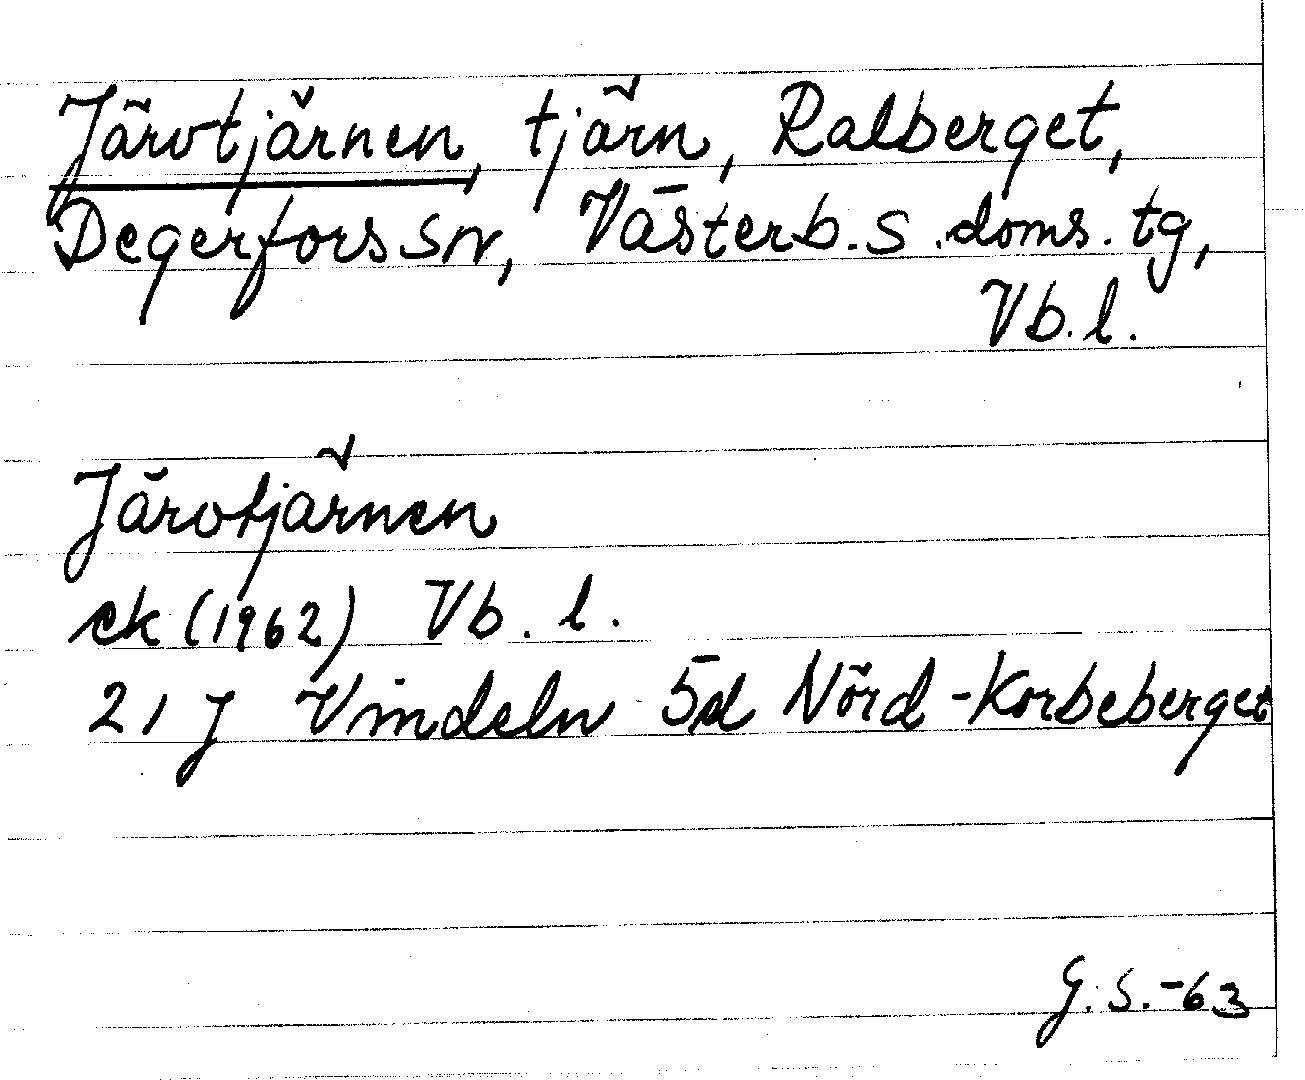 Järvtjärnen, tjärn, Ralberget,
Degerfors sn, Västerb. s. doms. tg,
Vb. l.
Järvtjärnen
ek (1962) Vb. l.
21 J Vindeln 5d Nörd-Korbeberget
G. S. -63